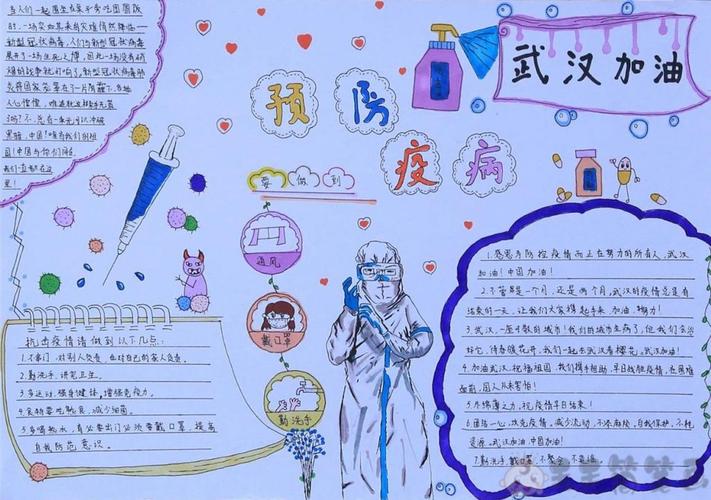 与人们一起围坐在桌子旁吃团圆饭
时,一场突如其来的灾难悄然降临
新型冠状病毒,人们与新型冠状病毒
展开了一场生死之博,因此一场没有硝
烟的战争就打响了,新型冠状病毒
人心惶惶,
国!中国与你们同在
我们一直都在这
里!
武汉加油
预防
疫病
要做到
通风
戴口罩
勤洗手
抗击疫情请做到以下几点:
1.不串门,对别人负责,也对自己的家人负责。
2.勤洗手,讲究卫生。
3.多运动,强身健体,增强免疫力。
4.食物要吃熟食,减少细菌。
5.多喝热水,有必要出门必须带戴口罩,提高
自我防范意识。
1.感恩为防控疫情而正在努力的所有人,武汉
加油!中国加油!
2.不管是一个月,还是两个月,武汉的疫情总是有
结束的一天,让我们大家撑起手来 加油,努力!
3.武汉,一座才数的城市!我们的城市生病了,但我们会治
好它,待春暖花开,我们一起去武汉看樱花。武汉加油!
4.加油武汉,祝福祖国,我们携手相助,早日战胜疫情,在困难
面前,国人从来害怕!
5.尽绵薄之力,抗疫情早日结束!
6.团结一心,攻克疫情,减少流动,不添麻烦,自我保护,不耗
资源,武汉加油,中国加油!
7.勤洗手,戴口罩,不聚会,不